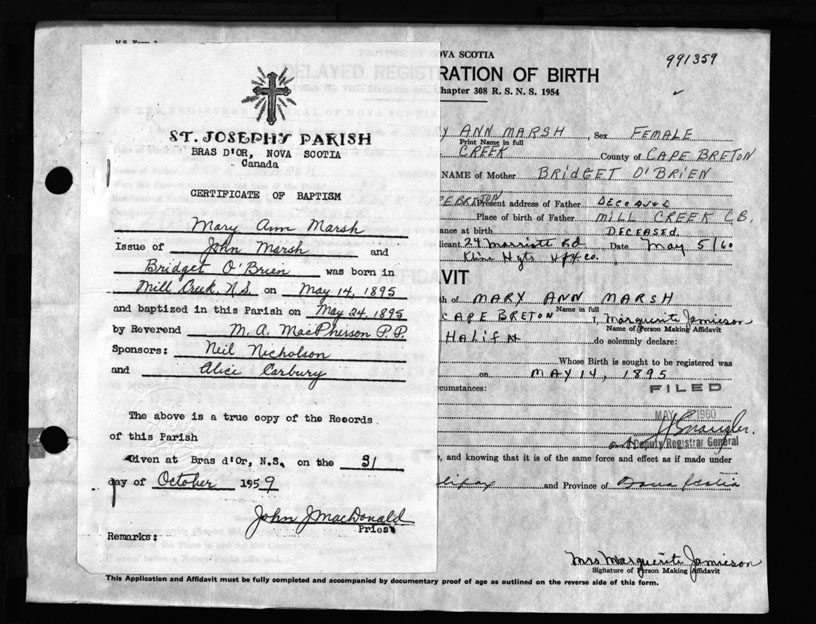 ST. JOSEPH'S PARISH
BRAS D'OR, NOVA SCOTIA
Canada
CERTIFICATE OF BAPTISM
Mary Ann Marsh
Issue of John Marsh and
Bridget O'Brien was born in
Mill Creek N.S. on May 14, 1895
and baptized in this Parish on May 24, 1895
by Reverend M. A. MacPherson P.P.
Sponsors: Neil Nicholson
and Alice Carbury
The above is a true copy of the Records
of this Parish
Given at Bras d'Or, N.S. on the 31
day of October 1959
John J MacDonald
Priest
Remarks:
OVA SCOTIA
991359
RATION OF BIRTH
hapter 308 R. S. N. S. 1954
Y ANN MARSH, Sex FEMALE
Print Name in full
CREEK County of CAPE BRETON
NAME of Mother BRIDGET O'BRIEN
PE BRETON Present address of Father DECEASED
Place of birth of Father MILL CREEK CB.
ance at birth DECEASED.
licant 24 Marriott Rd Date May 5/60
Hfx co.
VIT
h of MARY ANN MARSH
Name in full
CAPE BRETON I, Marguerite Jamieson
Name of Person Making Affidavit
HALIFAX do solemnly declare:
Whose Birth is sought to be registered was
on MAY 14, 1895
cumstances:
FILED
MAY 1960
Deputy Registrar General
, and knowing that it is of the same force and effect as if made under
lifax and Province of Nova Scotia
Mrs Marguerite Jamieson
Signature of Person Making Affidavit
This Application and Affidavit must be fully completed and accompanied by documentary proof of age as outlined on the reverse side of this form.